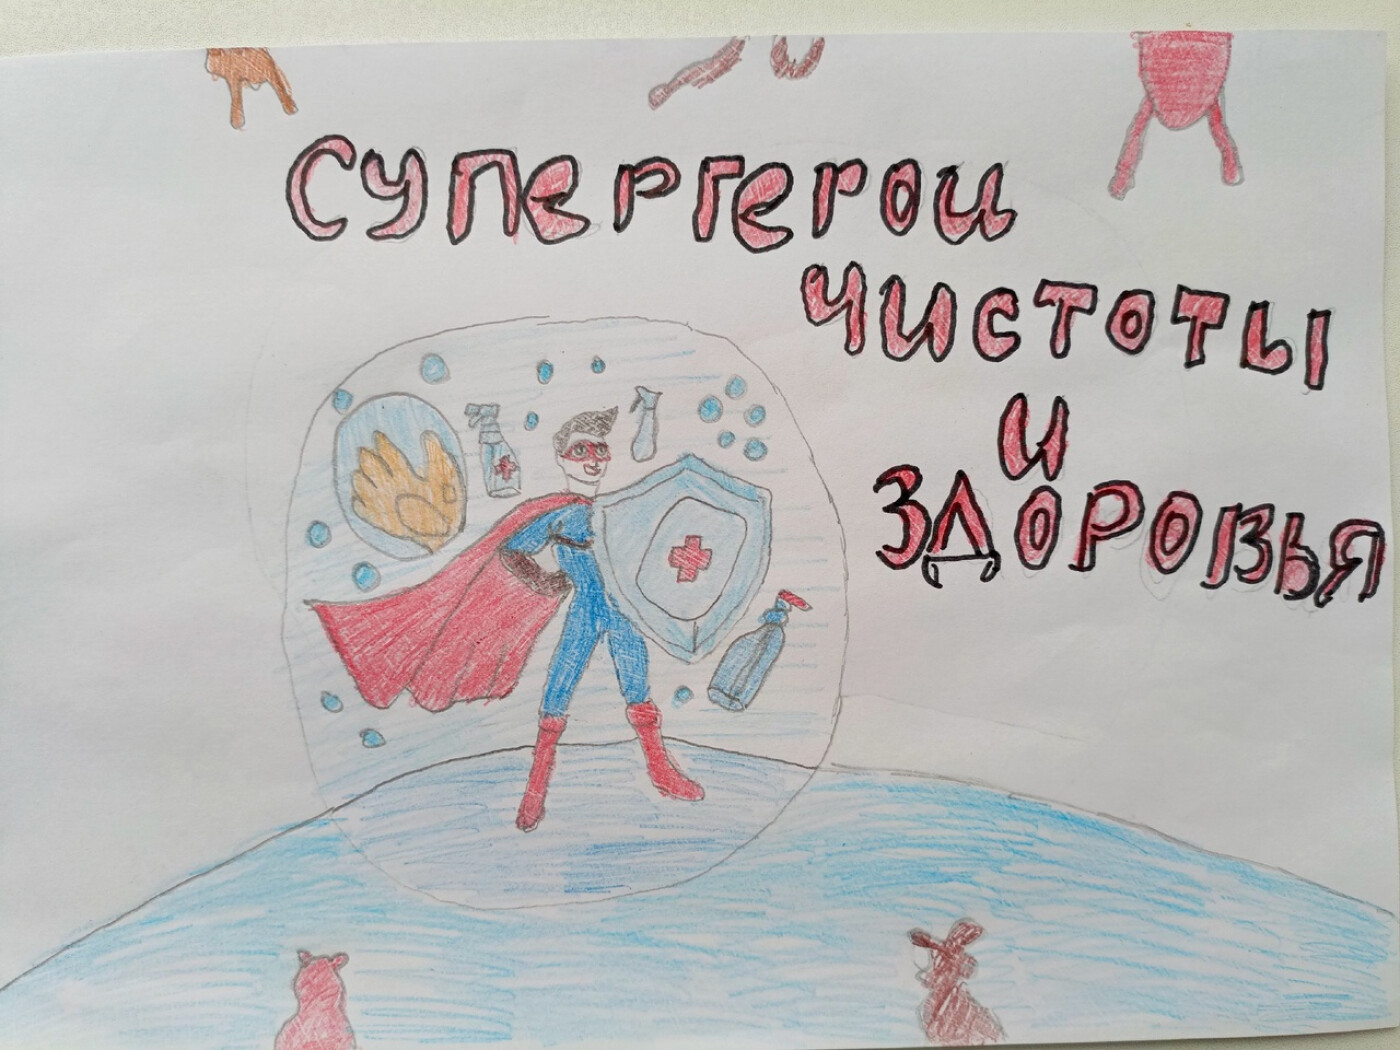 Супергерои
чистоты
и
здоровья